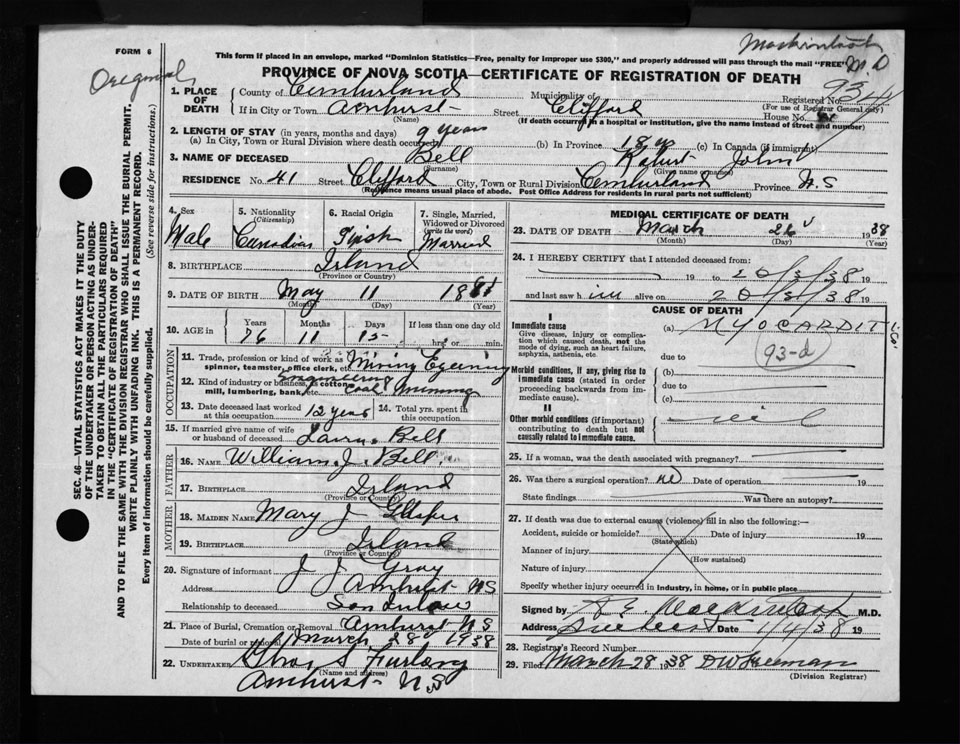 FORM 6
Mackintosh M.D
Original
This form if placed in an envelope, marked "Dominion Statistics—Free, penalty for improper use $300," and properly addressed will pass through the mail "FREE"
PROVINCE OF NOVA SCOTIA—CERTIFICATE OF REGISTRATION OF DEATH
1. PLACE OF DEATH County of Cumberland Municipality of Registered No.
(For use of Registrar General only)
If in City or Town Amhurst Street Clifford House No.
(Name) (If death occurred in a hospital or institution, give the name instead of street and number)
2. LENGTH OF STAY (in years, months and days)
(a) In City, Town or Rural Division where death occurred 9 years (b) In Province 18 (c) In Canada (if immigrant)
3. NAME OF DECEASED Bell Robert John
(Surname) (Given name or names)
RESIDENCE No. 41 Street Clifford City, Town or Rural Division Cumberland Province N.S
(Residence means usual place of abode. Post Office Address for residents in rural parts not sufficient)
4. Sex Male
5. Nationality (Citizenship) Canadian
6. Racial Origin Irish
7. Single, Married, Widowed or Divorced (write the word) Married
8. BIRTHPLACE Irland
(Province or Country)
9. DATE OF BIRTH May 11
(Month) (Day) (Year)
10. AGE in Years 76 Months 11 Days 15 If less than one day old
hrs. or min.
OCCUPATION
11. Trade, profession or kind of work as spinner, teamster, office clerk, etc. Mining
12. Kind of industry or business, as cotton mill, lumbering, bank, etc. Coal Minning
13. Date deceased last worked at this occupation 12 years 14. Total yrs. spent in this occupation
15. If married give name of wife or husband of deceased Laura Bell
FATHER
16. NAME William J. Bell
17. BIRTHPLACE Irland
(Province or Country)
MOTHER
18. MAIDEN NAME Mary J
19. BIRTHPLACE Irland
(Province or Country)
20. Signature of informant J J Gray
Address Amhurst NS
Relationship to deceased Son in law
21. Place of Burial, Cremation or Removal Amhurst N S
Date of burial or removal March 28 1938
22. UNDERTAKER Chas S Furlong
(Name and address)
Amhurst N.S
MEDICAL CERTIFICATE OF DEATH
23. DATE OF DEATH March 26 1938
(Month) (Day) (Year)
24. I HEREBY CERTIFY that I attended deceased from:
19 to 20/3/38 19
and last saw him alive on 19
CAUSE OF DEATH
I
Immediate cause
Give disease, injury or complication which caused death, not the mode of dying, such as heart failure, asphyxia, asthenia, etc.
(a) MYOCARDITIS
93-d
due to
Morbid conditions, if any, giving rise to immediate cause (stated in order proceeding backwards from immediate cause)
(b)
due to
(c)
II
Other morbid conditions (if important) contributing to death but not causally related to immediate cause.
nil
25. If a woman, was the death associated with pregnancy?
26. Was there a surgical operation? NO Date of operation 19
State findings Was there an autopsy?
27. If death was due to external causes (violence) fill in also the following:—
Accident, suicide or homicide? Date of injury 19
(State which)
Manner of injury
(How sustained)
Nature of injury
Specify whether injury occurred in Industry, in home, or in public place
Signed by M.D.
Address Date 1/4/38 19
28. Registrar's Record Number
29. Filed March 28 1938 DW Freeman
(Division Registrar)
SEC. 46—VITAL STATISTICS ACT MAKES IT THE DUTY
OF THE UNDERTAKER OR PERSON ACTING AS UNDER-
TAKER TO OBTAIN ALL THE PARTICULARS REQUIRED
IN THE "CERTIFICATE OF REGISTRATION OF DEATH"
AND TO FILE THE SAME WITH THE DIVISION REGISTRAR WHO SHALL ISSUE THE BURIAL PERMIT.
WRITE PLAINLY WITH UNFADING INK. THIS IS A PERMANENT RECORD.
Every item of information should be carefully supplied. (See reverse side for instructions.)